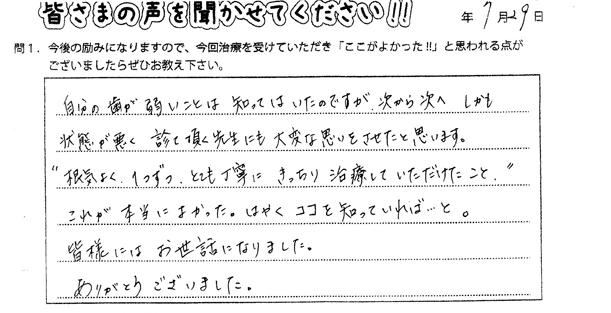 皆さまの声を聞かせてください!!
年 7月29日
問1．今後の励みになりますので、今回治療を受けていただき「ここがよかった!!」と思われる点が
ございましたらぜひお教え下さい。
自分の歯が弱いことは 知ってはいたのですが、次から次へ しかも
状態が悪く 診て頂く先生にも 大変な思いをさせたと思います。
"根気よく、1つずつ、とても丁寧に きっちり 治療していただけたこと。"
これが 本当によかった。はやく ココを知っていれば…と。
皆様には お世話になりました。
ありがとうございました。